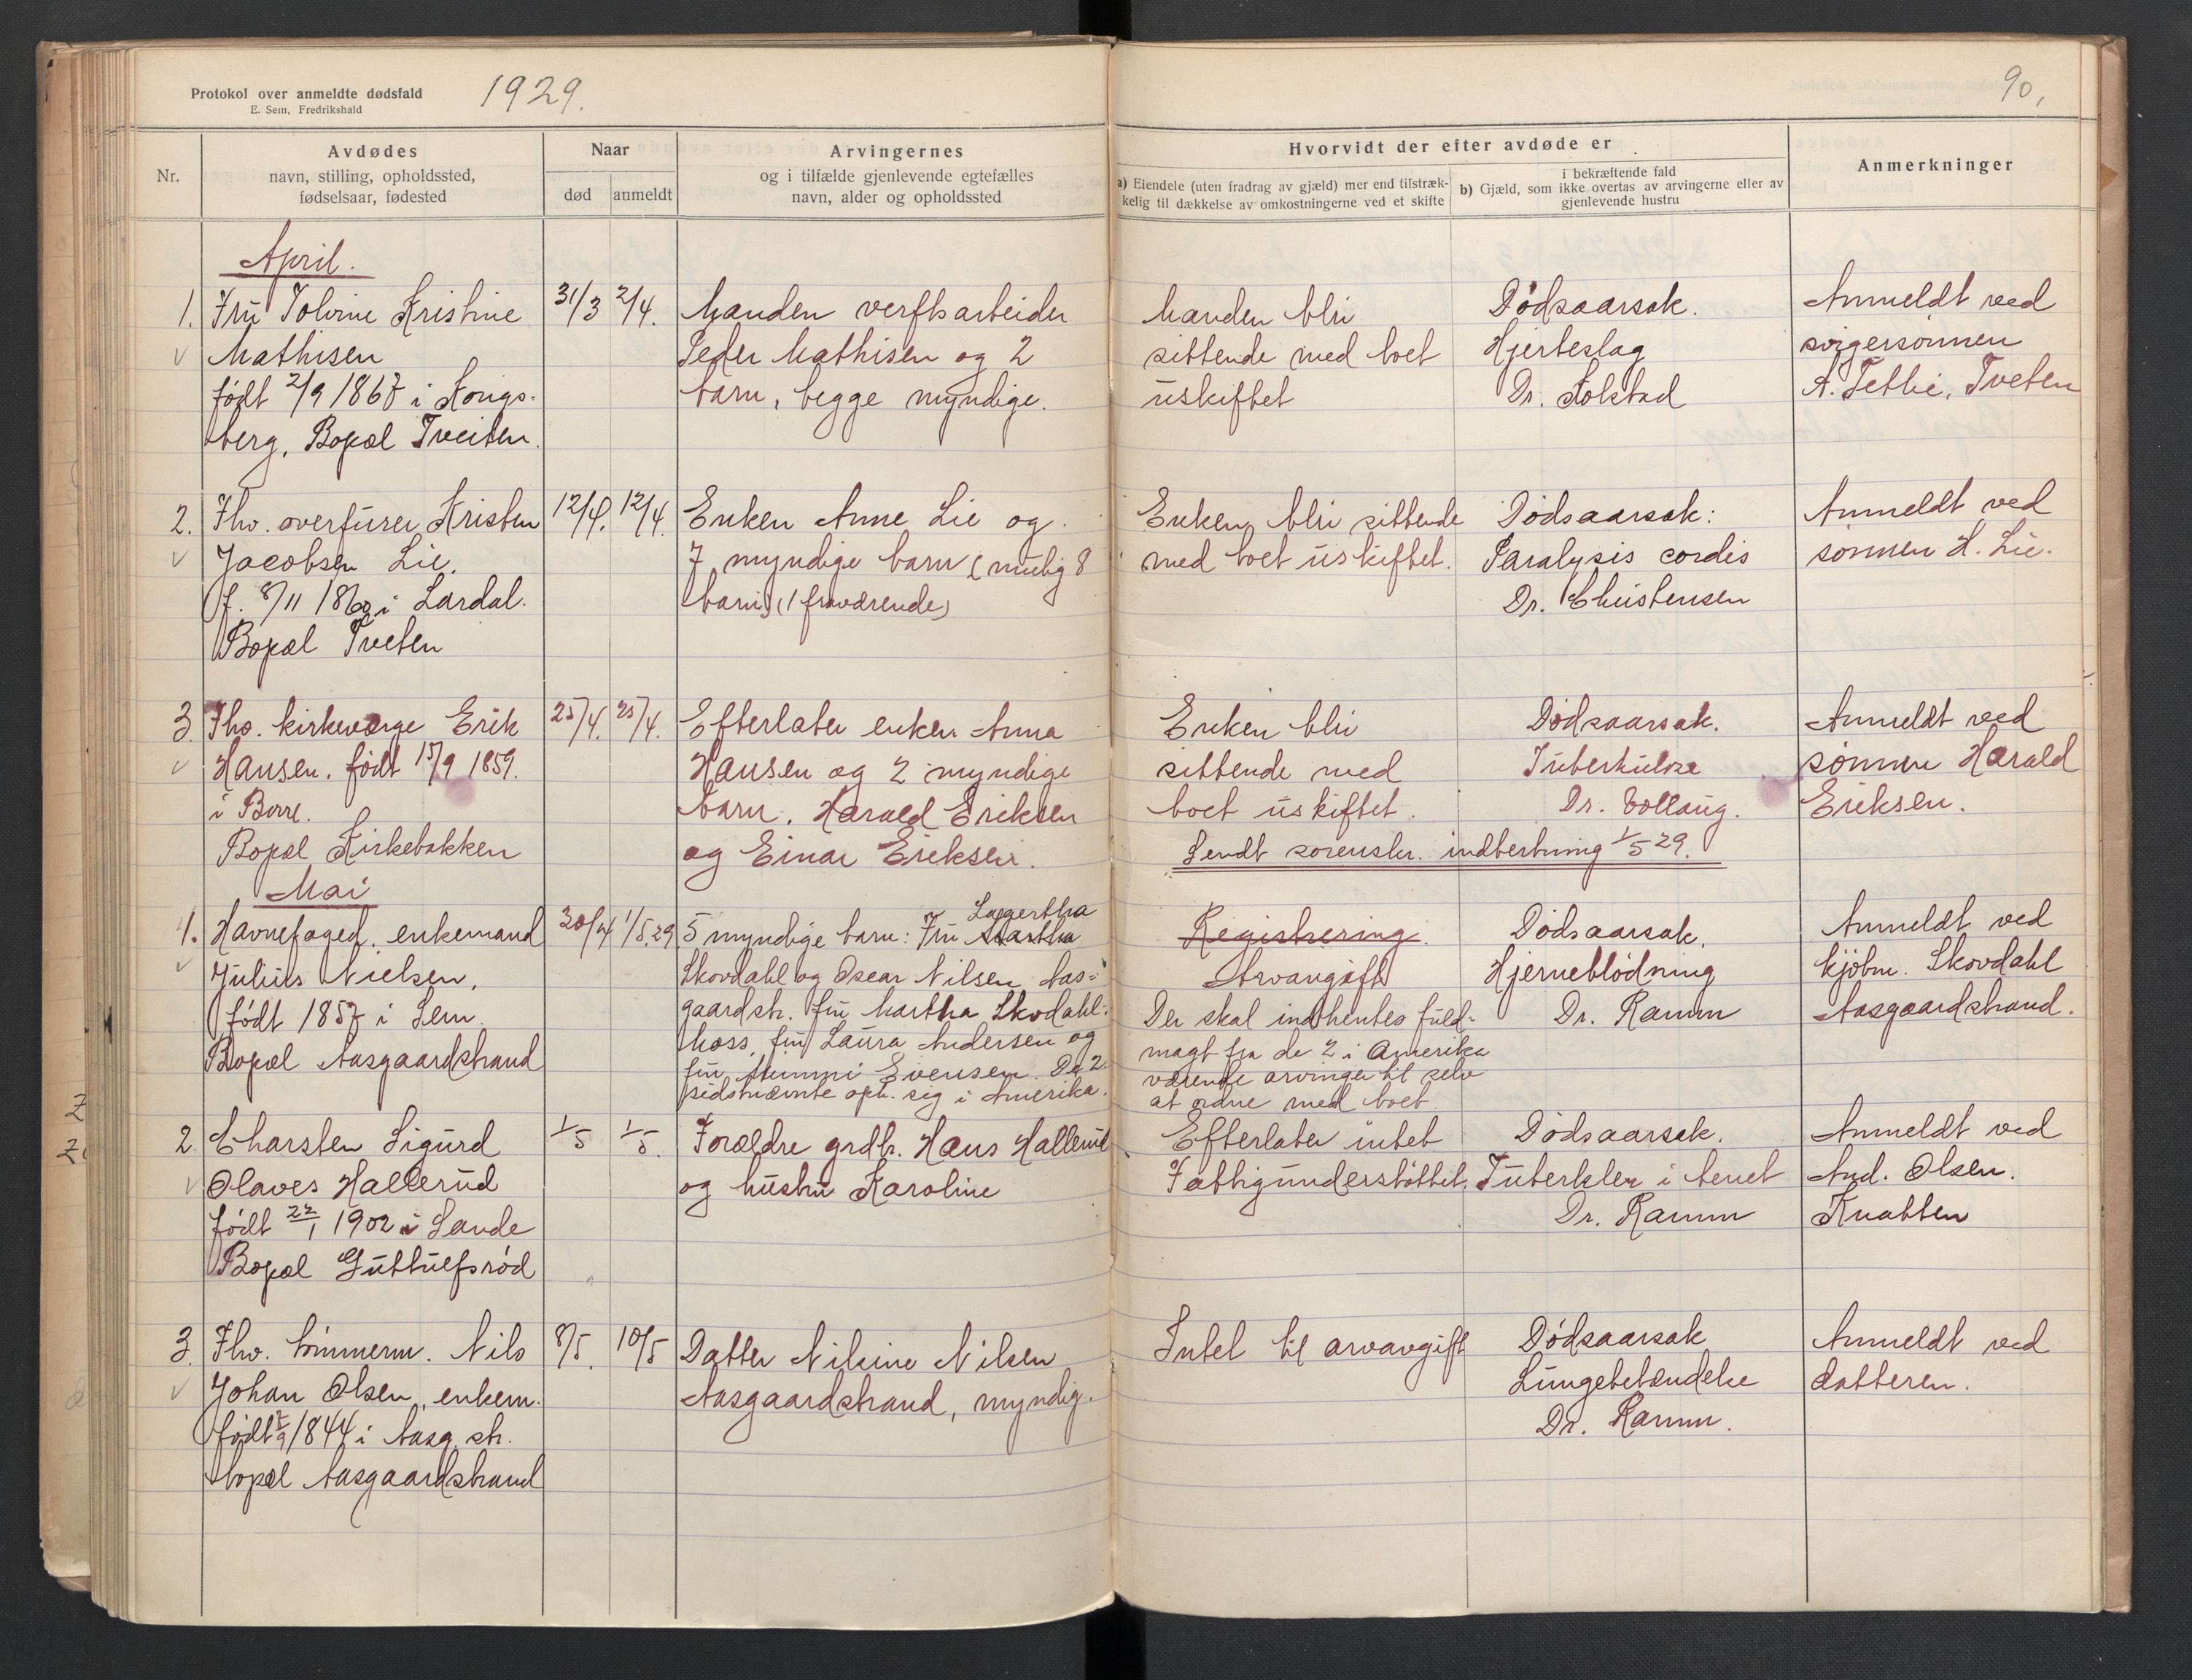 Protokol over anmeldte dødsfald
E. Sem, Fredrikshald
1929.
90,
Nr.
Avdødes
navn, stilling, opholdssted,
fødselsaar, fødested
Naar
død
anmeldt
Arvingernes
og i tilfælde gjenlevende egtefælles
navn, alder og opholdssted
Hvorvidt der efter avdøde er
a) Eiendele (uten fradrag av gjæld) mer end tilstræk-
kelig til dækkelse av omkostningerne ved et skifte
i bekræftende fald
b) Gjæld, som ikke overtas av arvingerne eller av
gjenlevende hustru
Anmerkninger
April.
1. Fru Tolvine Kristine
Mathisen
født 2/9 1867 i Kongs-
berg, Bopæl Tveiten.
31/3 2/4.
Manden verftsarbeider
Peder Mathisen og 2
barn, begge myndige.
Manden bli
sittende med boet
uskiftet
Dødsaarsak.
Hjerteslag
Dr. Kolstad
Anmeldt ved
svigersønnen
A. Tethie, Tveten
2. Fhv. overfurer Kristen
Jacobsen Lie.
f. 8/11 1860 i Lardal.
Bopæl Tveten
12/4. 12/4.
Enken Anne Lie og
7 myndige barn (mulig 8
barn) (1 fraværende)
Enken bli sittende
med boet uskiftet.
Dødsaarsak:
Paralysis cordis
Dr. Christensen
Anmeldt ved
sønnen H. Lie.
3. Fhv. kirkeværge Erik
Hansen, født 15/9 1859.
i Borre.
Bopæl Kirkebakken
25/4. 25/4.
Efterlater enken Anna
Hansen og 2 myndige
barn, Harald Eriksen
og Einar Eriksen.
Enken bli
sittende med
boet uskiftet.
Dødsaarsak.
Tuberkulose
Dr. Vollaug.
Sendt sorenskr. indberetning 1/5 29.
Anmeldt ved
sønnen Harald
Eriksen.
Mai
1. Havnefoged, enkemand
Julius Nielsen,
født 1857 i Sem.
Bopæl Aasgaardstrand
30/4 1/5.29
Lagertha
5 myndige barn: Fru Martha
Skovdahl og Oscar Nilsen Aas-
gaardstr. fru Martha Skodahl.
Moss, fru Laura Andersen og
fru Mimmi Evensen. De 2
sidstnævnte oph. sig i Amerika.
Registrering.
Arvavgift
Der skal indhentes fuld-
magt fra de 2 i Amerika
værende arvinger til selv
at ordne med boet
Dødsaarsak.
Hjerneblødning
Dr. Ramm
Anmeldt ved
kjøbm. Skovdahl
Aasgaardstrand.
2. Charsten Sigurd
Olaves Hallerud
født 22/1 1902 i Sande
Bopæl Guttulfsrød
1/5 1/5.
Forældre grdbr. Hans Hallerud
og hustru Karoline
Efterlater intet
Fattigunderstøttet.
Dødsaarsak.
Tuberkler i benet
Dr. Ramm
Anmeldt ved
And. Olsen.
Knatten
3. Fhv. tømmerm. Nils
Johan Olsen, enkem.
født 2/9 1844 i Aasg.str.
bopæl Aasgaardstrand
8/5. 10/5
Datter Nilsine Nilsen
Aasgaardstrand, myndig.
Intet til arvavgift
Dødsaarsak
Lungebetændelse
Dr. Ramm.
Anmeldt ved
datteren.